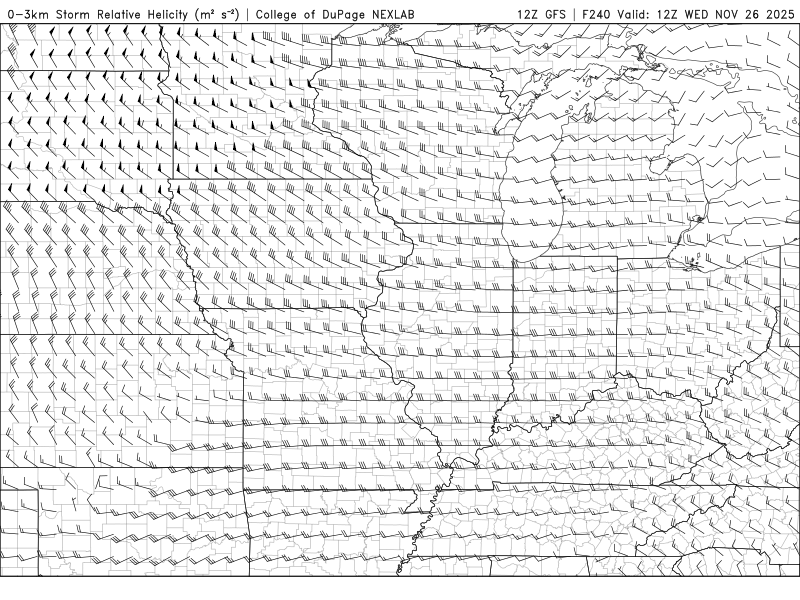 0-3km Storm Relative Helicity (m² s⁻²) | College of DuPage NEXLAB
12Z GFS | F240 Valid: 12Z WED NOV 26 2025